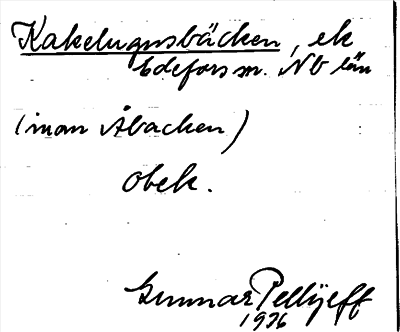 Kakelugnsbäcken, ek
Edefors sn. Nb län
(inom Åbacken)
Obek.
Gunnar Pellijeff
1976